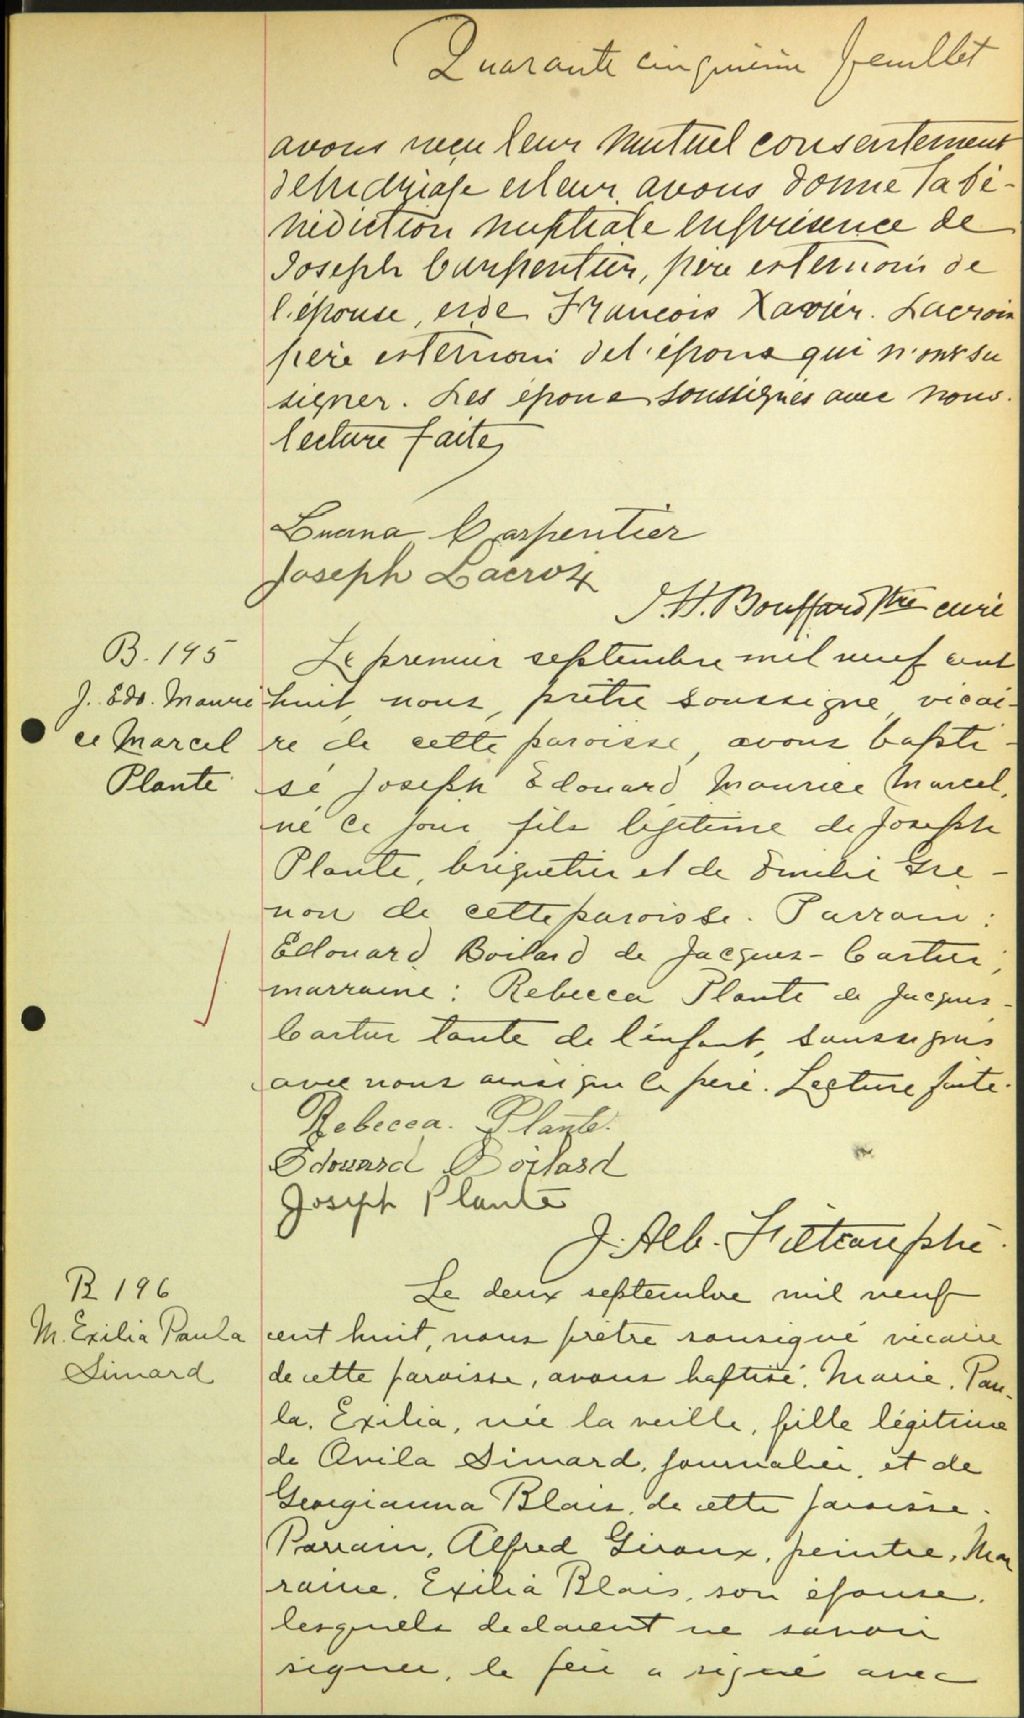 Quarante cinquième feuillet
avons reçu leur mutuel consentement
de mariage et leur avons donné la bé-
nédiction nuptiale en présence de
Joseph Carpentier, père et témoin de
l'épouse, et de François Xavier Lacroix
père et témoin de l'époux qui n'ont su
signer. Les époux soussignés avec nous.
lecture faite
Carpentier
Joseph Lacroix
J. H. Bouffard Ptre curé
B. 195
J. Edo. Mauri
ce Marcel
Plante
Le premier septembre mil neuf cent
huit, nous, prêtre soussigné, vicai-
re de cette paroisse, avons bapti-
sé Joseph Edouard Maurice Marcel,
né ce jour, fils légitime de Joseph
Plante, briquetier et de Emilie Gre-
non de cette paroisse. Parrain:
Edouard Boilard de Jacques-Cartier;
marraine: Rebecca Plante de Jacques-
Cartier tante de l'enfant, soussignés
avec nous ainsi que le père. Lecture faite.
Rebecca. Plante.
Edouard Boilard
Joseph Plante
J. Alb. ptre.
B 196
M. Exilia Paula
Simard
Le deux septembre mil neuf
cent huit, nous prêtre sousigné vicaire
de cette paroisse, avons baptisé, Marie, Pau-
la, Exilia, née la veille, fille légitime
de Ovila Simard, journalier, et de
Georgianna Blais, de cette paroisse.
Parrain, Alfred Giroux, peintre, Mar
raine, Exilia Blais, son épouse,
lesquels declarent ne savoir
signer, le père a signé avec